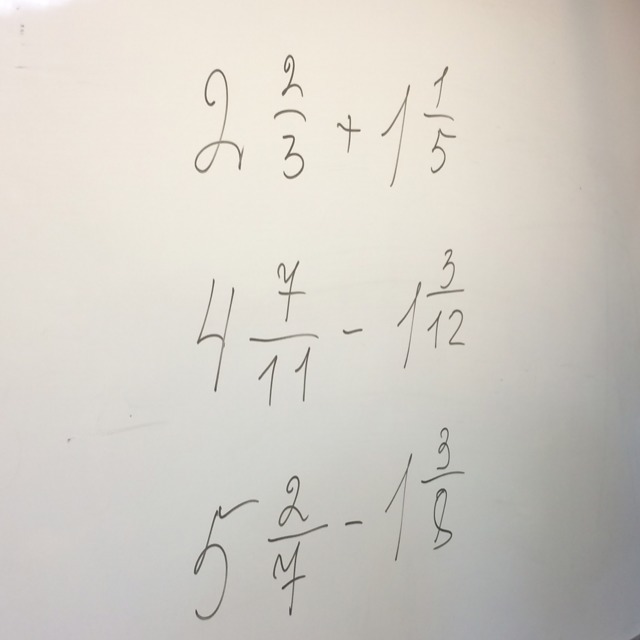 2 2/3 + 1 1/5
4 7/11 - 1 3/12
5 2/7 - 1 3/8